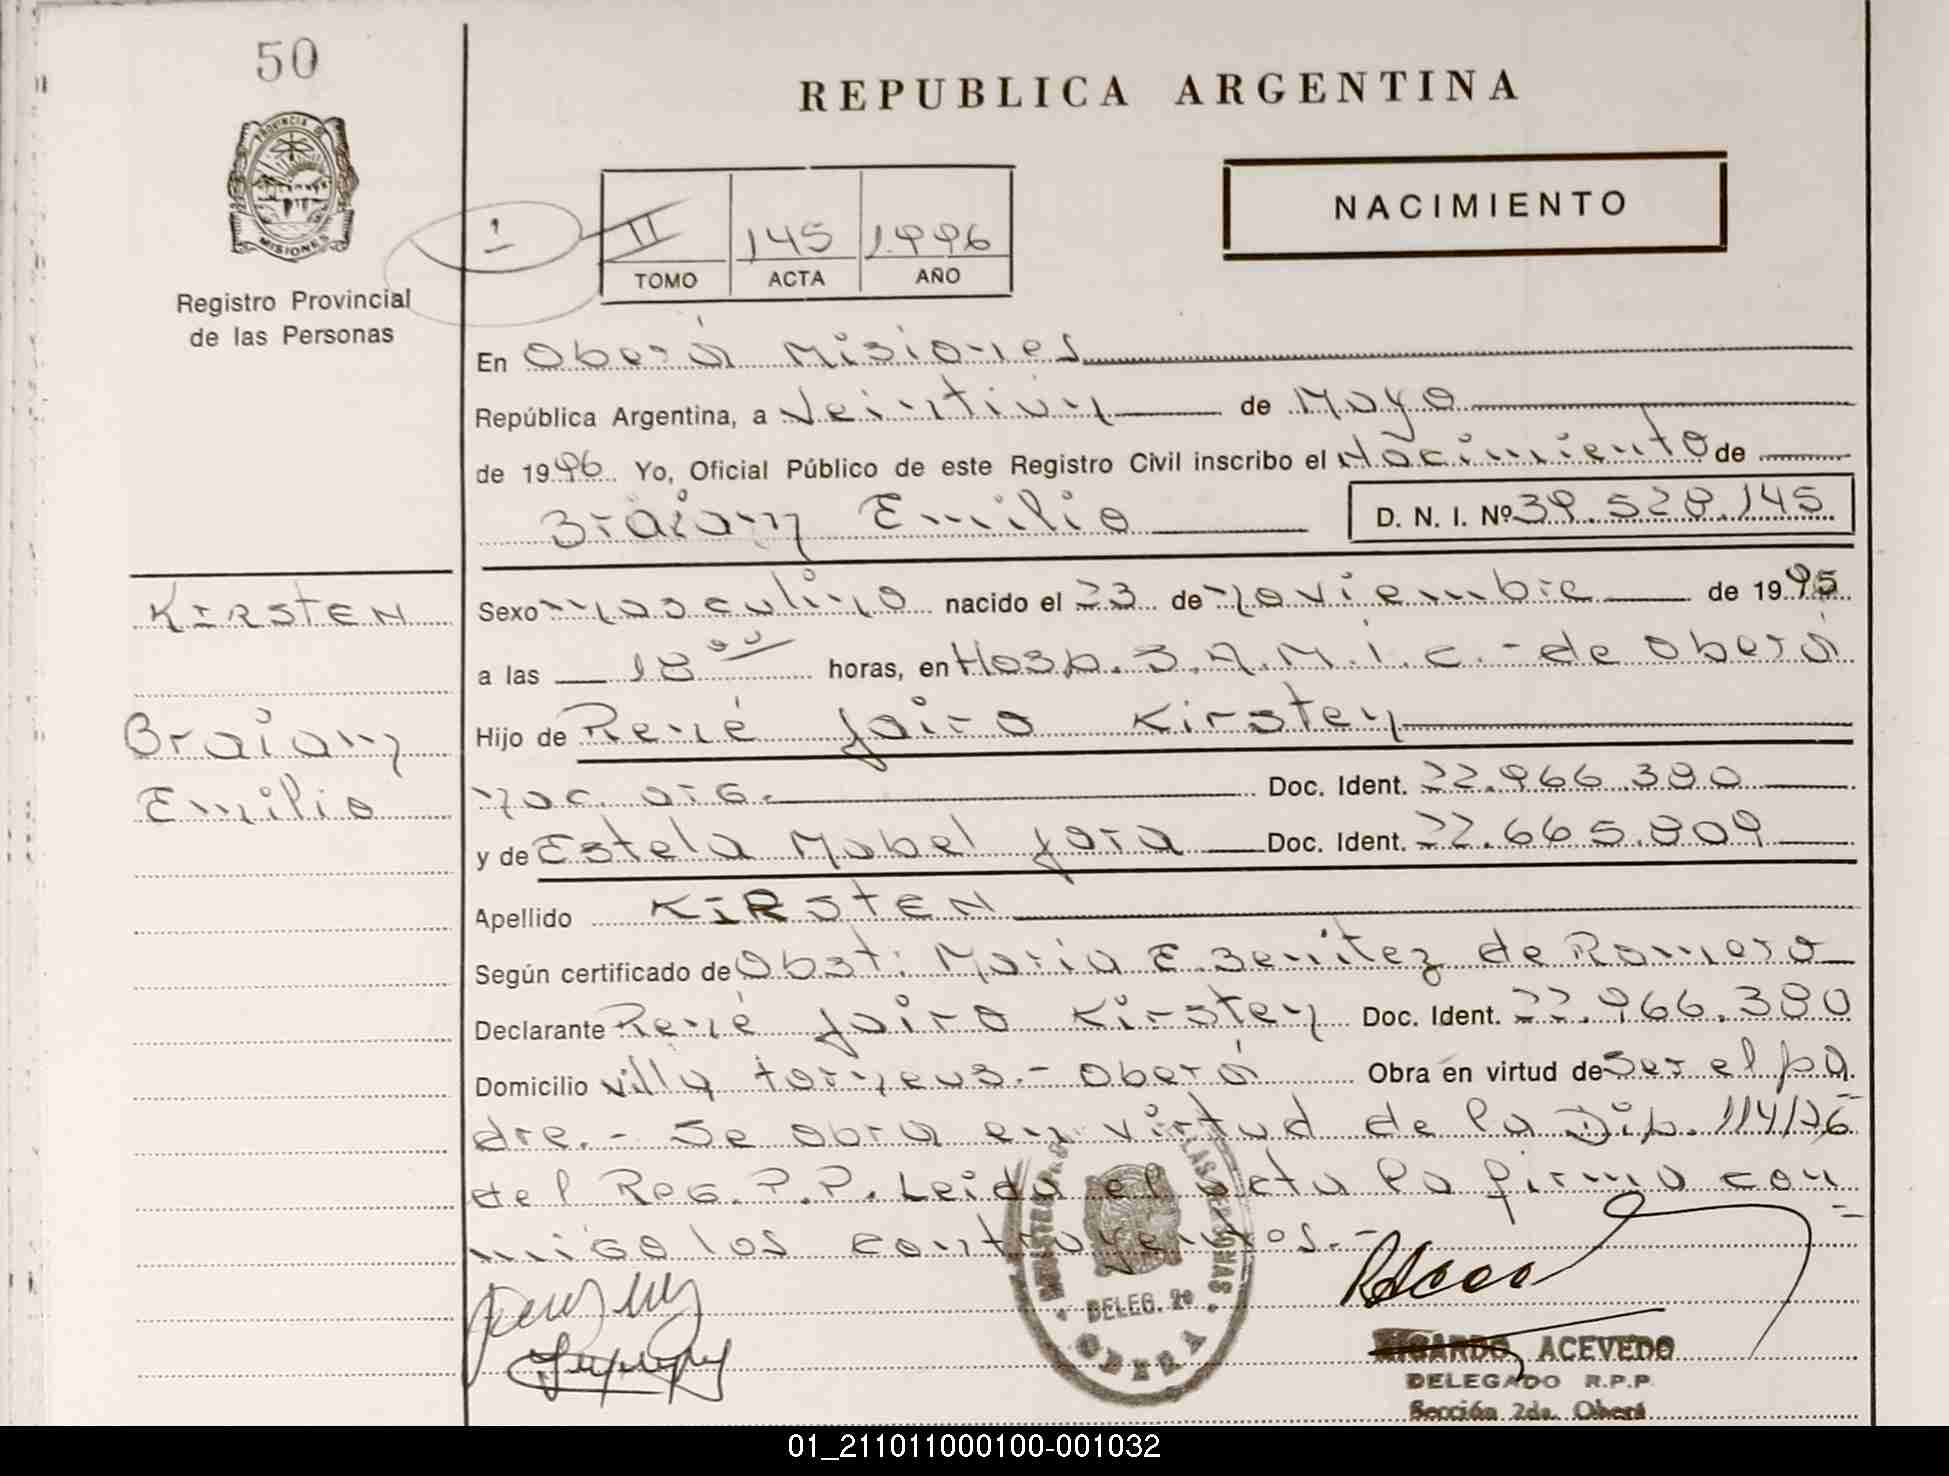 50
REPUBLICA ARGENTINA
PROVINCIA DE
MISIONES
Registro Provincial
de las Personas
1
II 145 1996
TOMO ACTA AÑO
NACIMIENTO
En Oberá Misiones
República Argentina, a Veintiún de Mayo
de 1996. Yo, Oficial Público de este Registro Civil inscribo el Nacimiento de
Braian Emilio D. N. I. Nº 39.528.145
KIRSTEN
Sexo masculino nacido el 23 de noviembre de 1995
a las 18 00 horas, en Hosp. S.A.M.i.c.- de Oberá
Braian
Hijo de René Jairo Kirsten
Emilio
nac. arg. Doc. Ident. 22.966.380
y de Estela Mabel Jara Doc. Ident. 22.665.809
Apellido KIRSTEN
Según certificado de Obst: María E. Benitez de Romero
Declarante René Jairo Kirsten Doc. Ident. 22.966.380
Domicilio Villa torneus.- Oberá Obra en virtud de Ser el pa
dre.- Se obra en virtud de la Dip. 114/76
del Reg. P.P. Leida el acta la firma con
migo los contrayentes.-
DELEG. 2º
OBERA
RICARDO ACEVEDO
DELEGADO R.P.P.
Sección 2da. Oberá
01_211011000100-001032